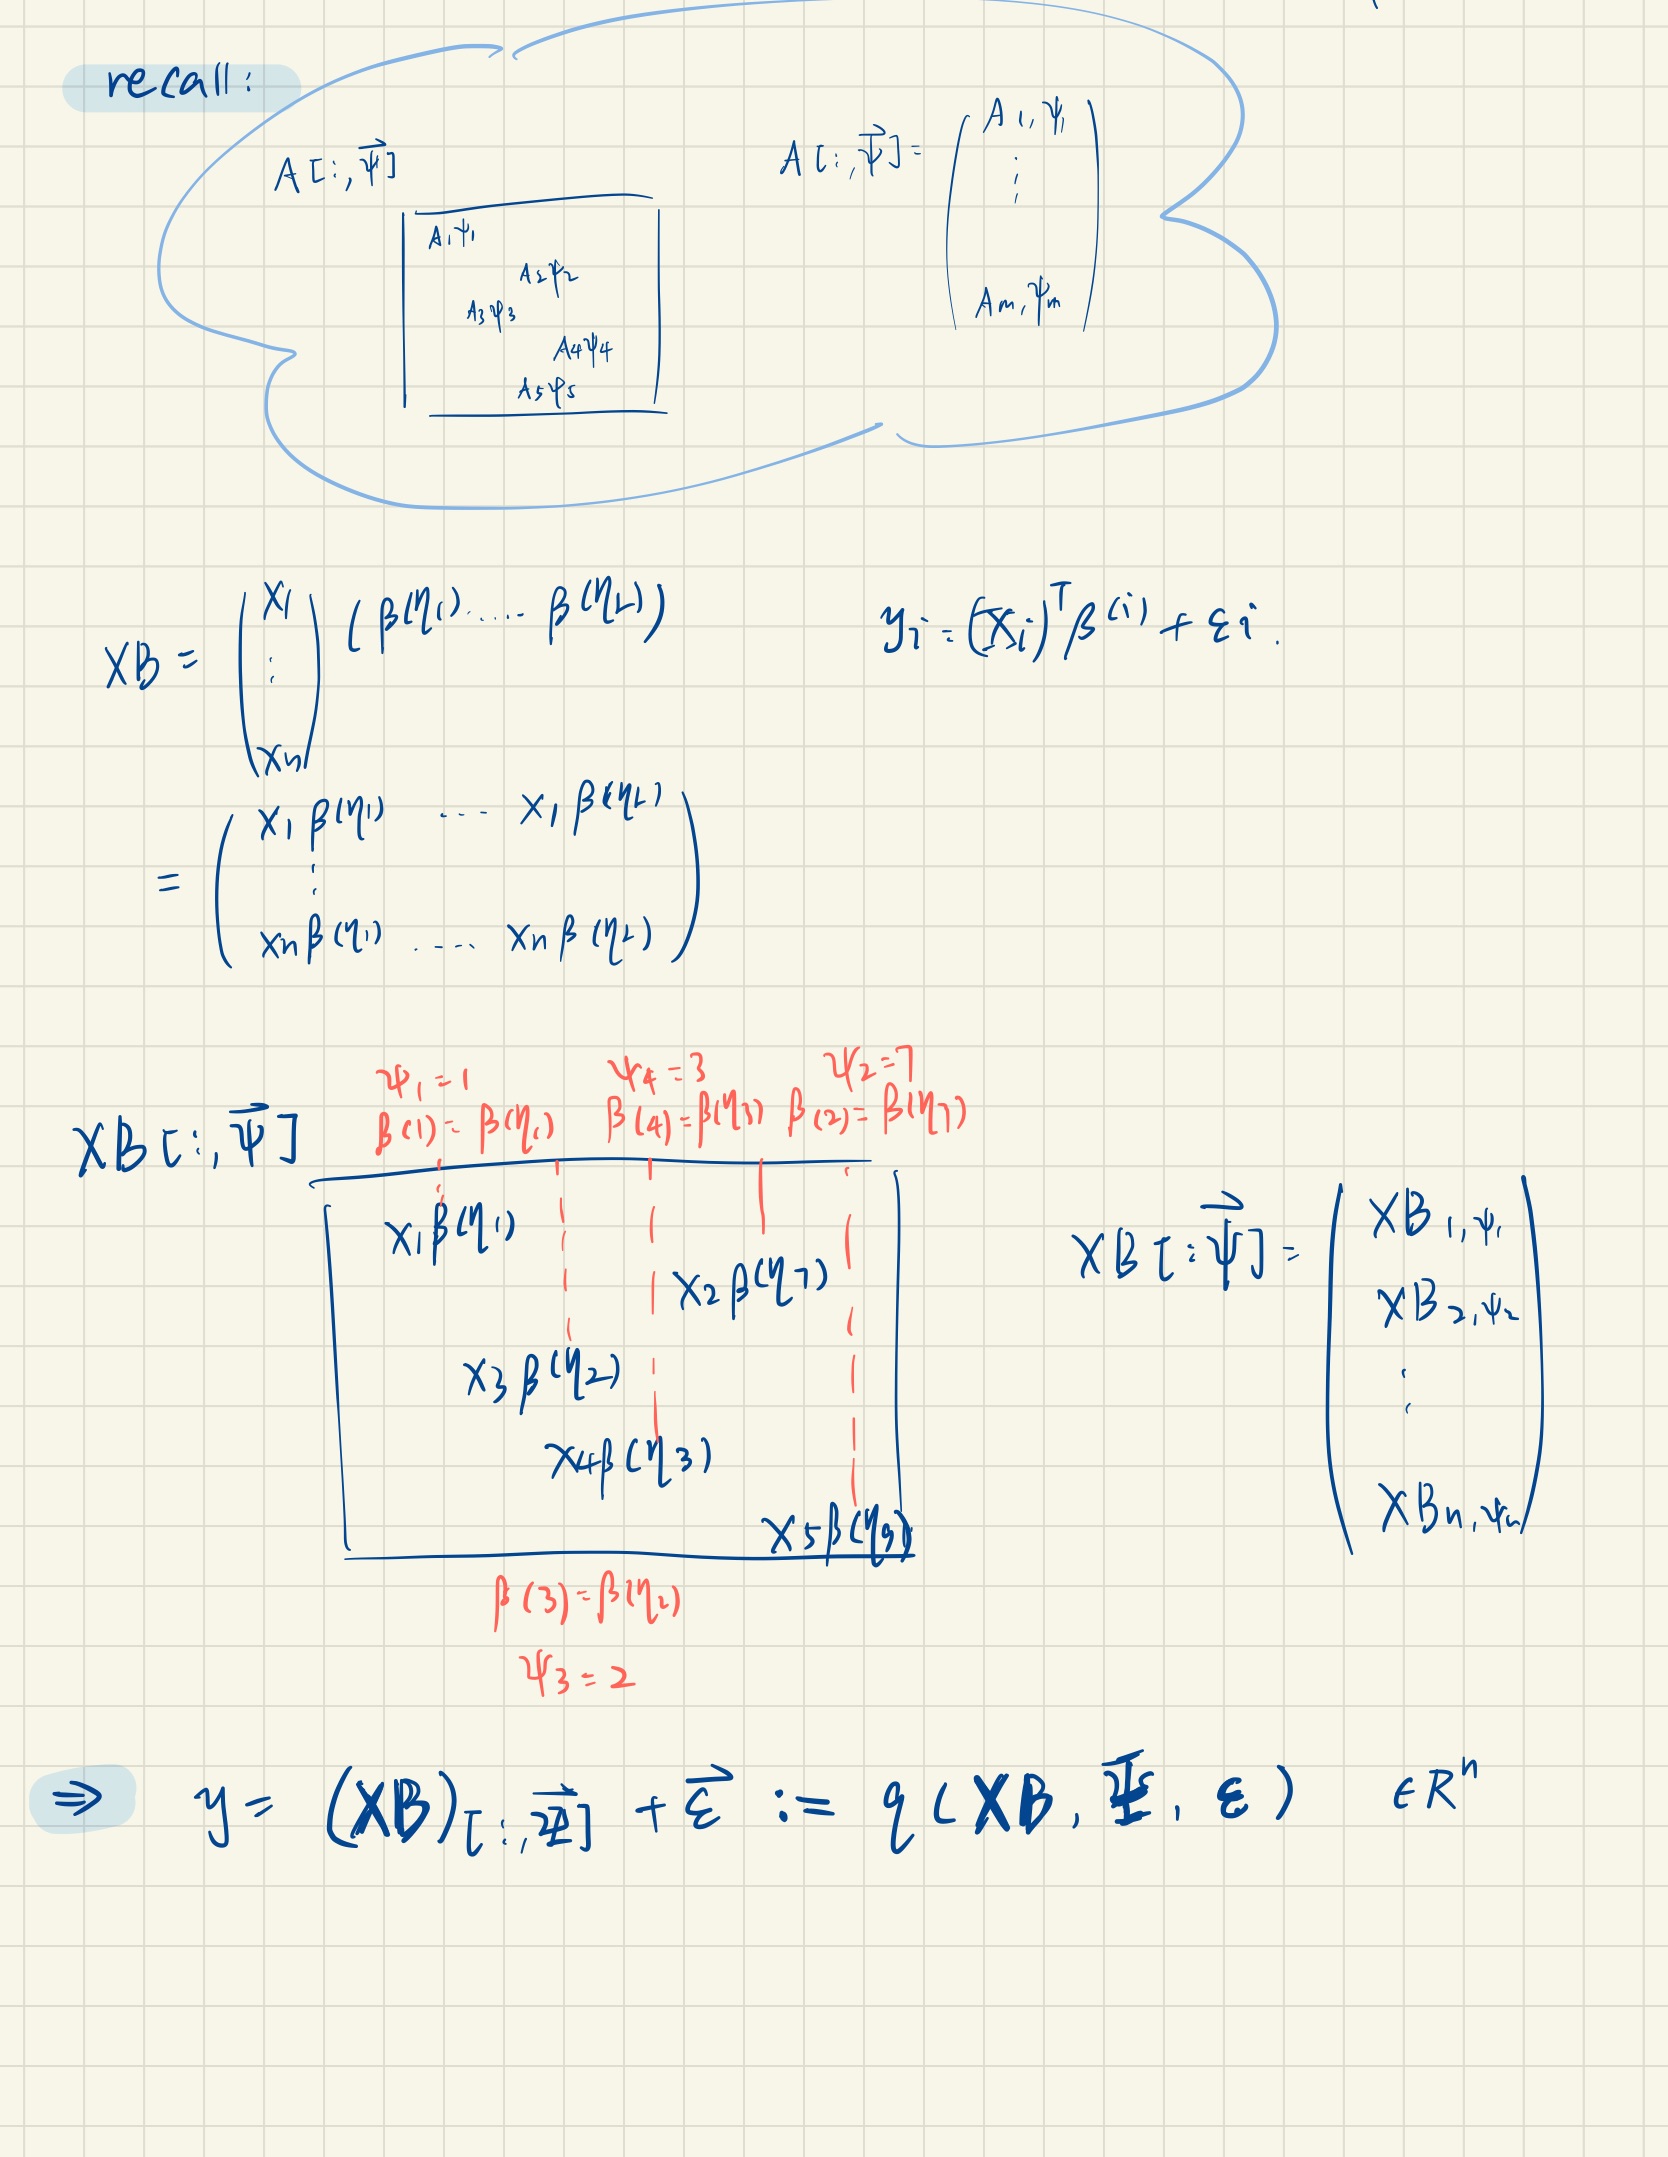 recall:
A[:,Ψ⃗]
A₁ψ₁
A₂ψ₂
A₃ψ₃
A₄ψ₄
A₅ψ₅
A[:,Ψ⃗] = ( A₁,ψ₁
⋮
Aₘ,ψₘ )
XB = ( X₁ ⋮ Xn ) ( β(η₁) ..... β(η_L) )
yᵢ = (Xᵢ)ᵀ β⁽ⁱ⁾ + εᵢ.
= ( X₁β(η₁) ... X₁β(η_L)
⋮
Xnβ(η₁) .... Xnβ(η_L) )
ψ₁ = 1 ψ₄ = 3 ψ₂ = 7
β(1) = β(η₁) β(4) = β(η₃) β(2) = β(η₇)
XB[:,Ψ⃗]
X₁β(η₁)
X₂β(η₇)
X₃β(η₂)
X₄β(η₃)
X₅β(η₉)
β(3) = β(η₂)
ψ₃ = 2
XB[:Ψ⃗] = ( XB₁,ψ₁
XB₂,ψ₂
⋮
XBn,ψn )
⇒ y = (XB)[:,Ψ⃗] + ε⃗ := q(XB, Ψ⃗, ε) ∈ Rⁿ